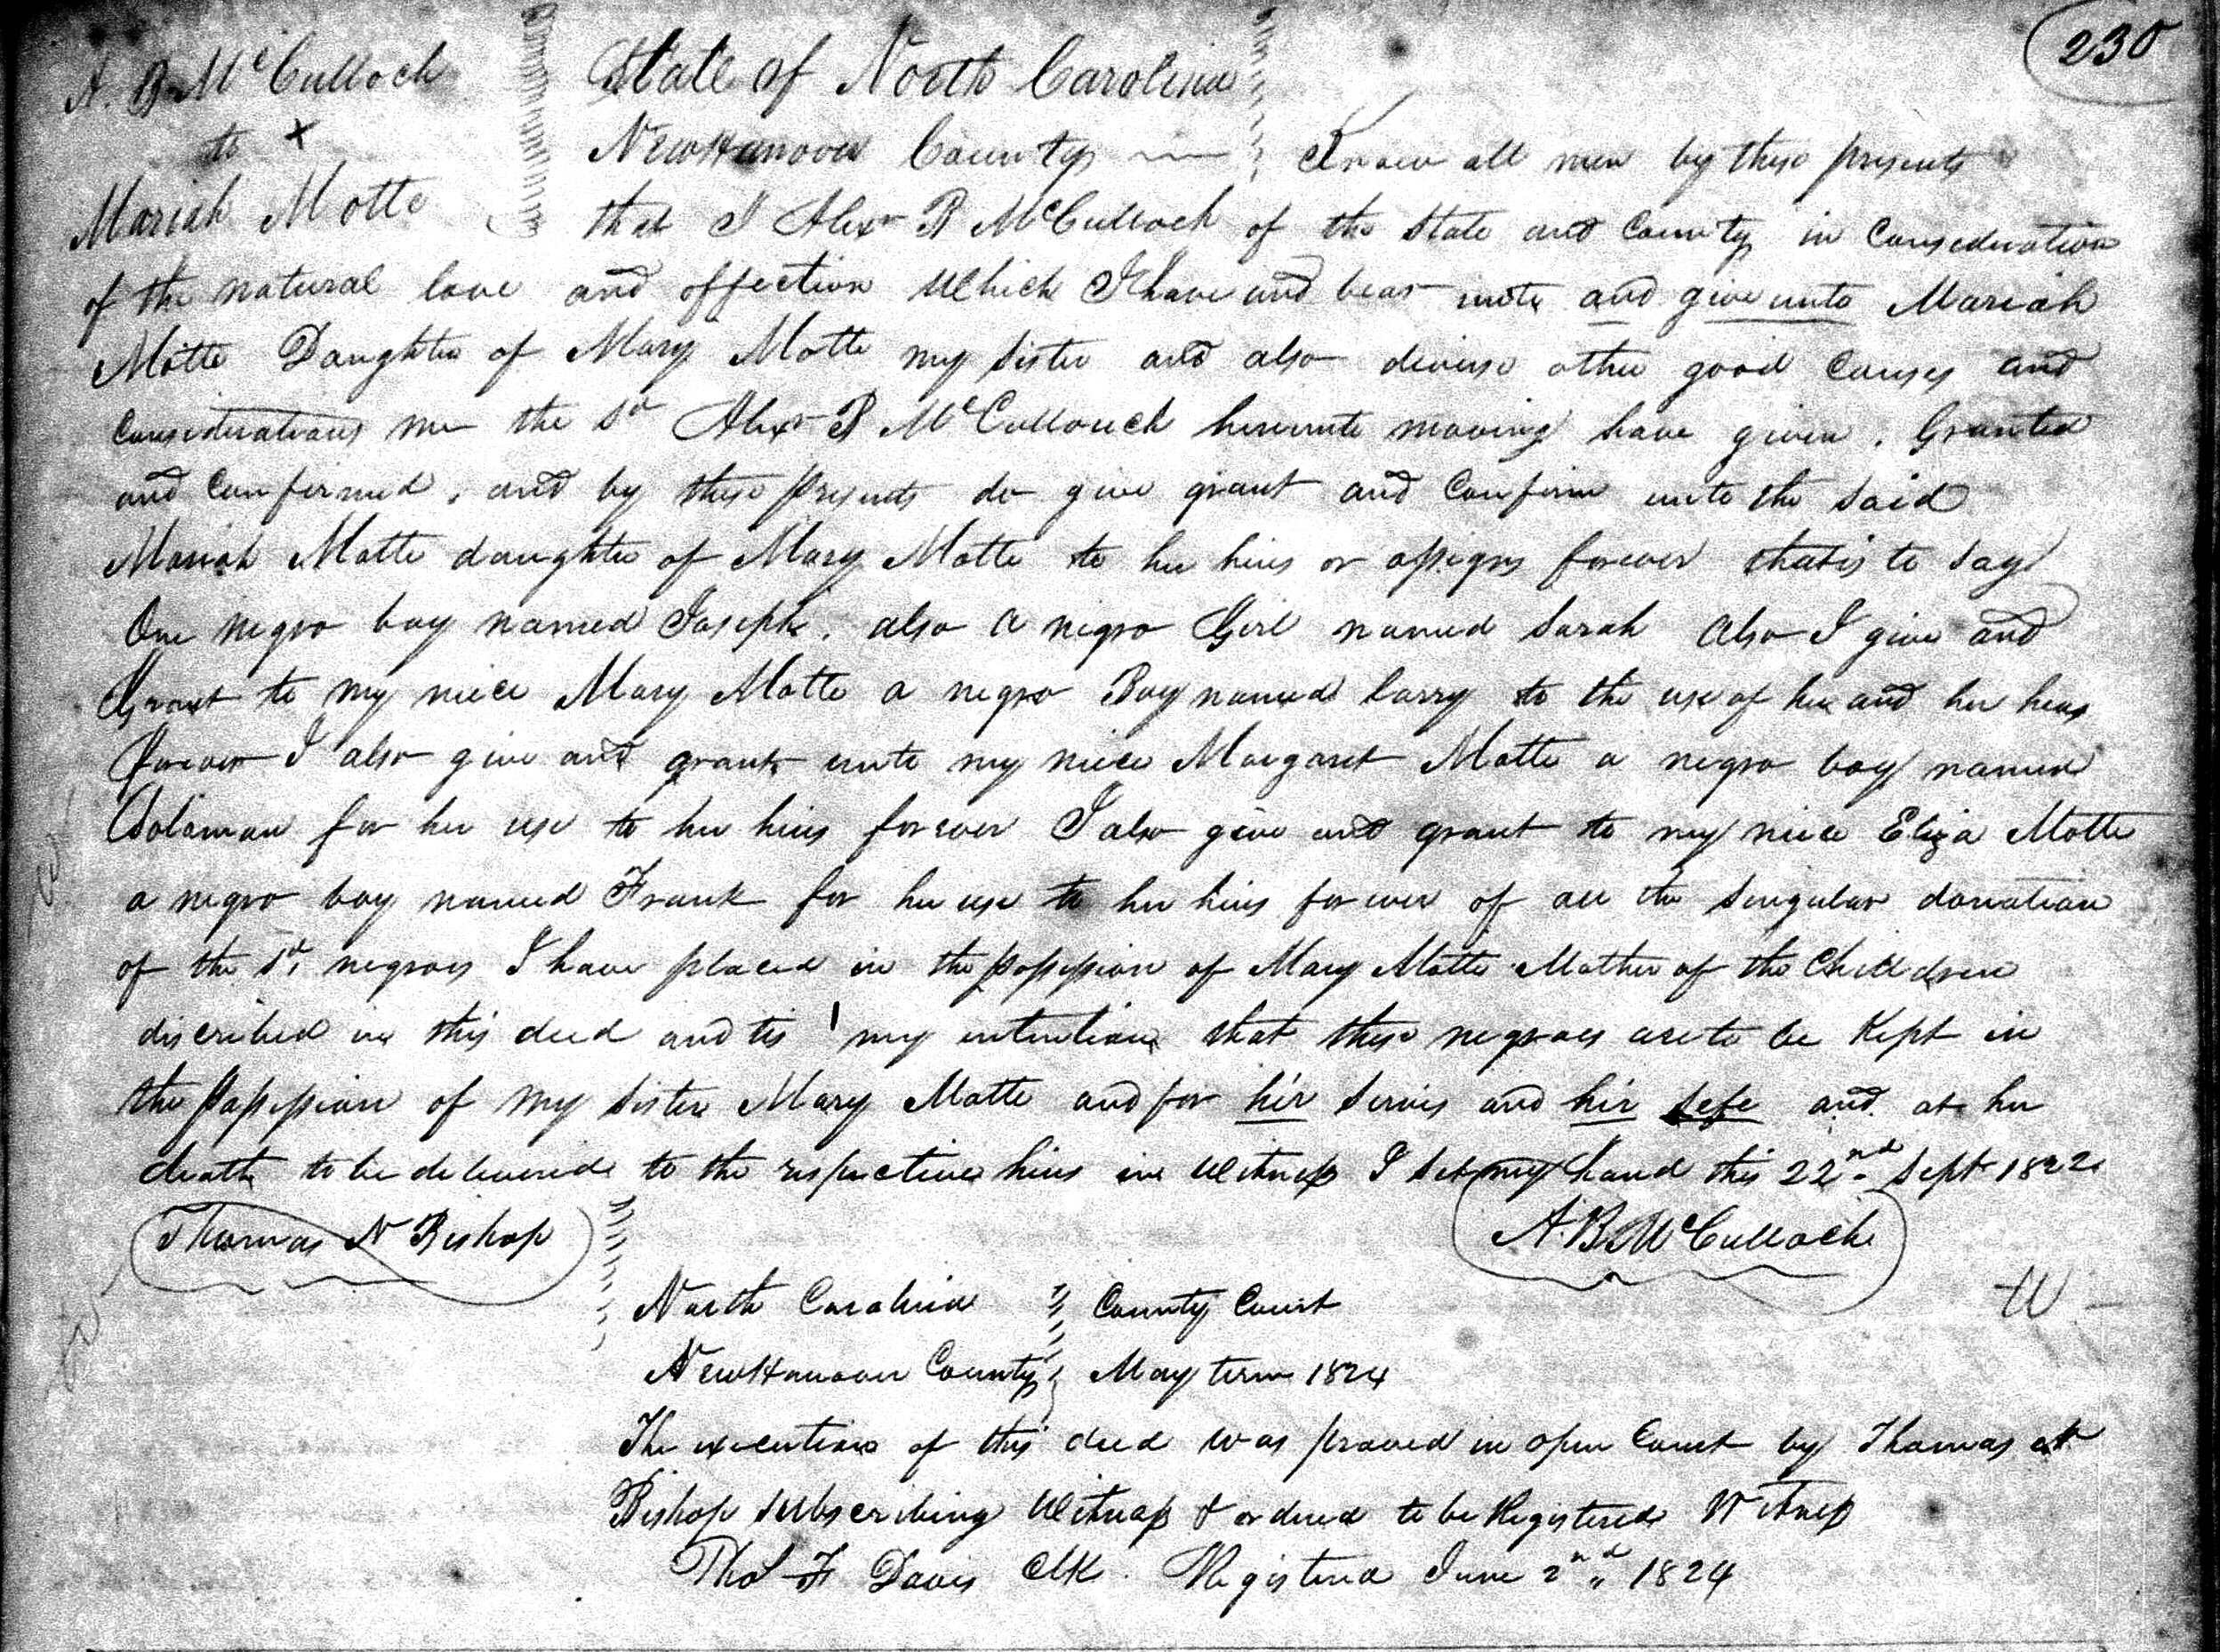 230
A. B. McCulloch
to x
Mariah Motte
State of North Carolina
New Hanover County Know all men by these presents
that I Alexr B McCulloch of the State and County in Consideration
of the natural love and affection which I have and bear unto and give unto Mariah
Motte Daughter of Mary Motte my Sister and also diverse other good Causes and
Considerations me the sd Alexr B McCullouch hereunto moving have given, Granted
and Confirmed, and by these presents do give grant and Confirm unto the Said
Mariah Motte daughter of Mary Motte to her heirs or assigns forever that is to Say
One negro boy named Joseph. also a negro Girl named Sarah Also I give and
Grant to my niece Mary Motte a negro Boy named Carry to the use of her and her heirs
forever I also give and grant unto my niece Margaret Motte a negro boy named
Soloman for her use to her heirs forever I also give and grant to my niece Eliza Motte
a negro boy named Frank for her use to her heirs forever of all the Singular donation
of the sd negroes I have placed in the possession of Mary Motte Mother of the Children
discribed in this deed and tis my intention that these negroes are to be Kept in
the possession of my Sister Mary Motte and for hir Servis and hir Lefe and at her
death to be delivered to the respective heirs in Witness I Set my hand this 22nd Sept 1822
Thomas N Bishop
A. B. McCulloch
North Carolina County Court
New Hanover County May term 1824
The execution of this deed was proved in open Court by Thomas N
Bishop Subscribing Witness & ordered to be Registered Witness
Thos F Davis Clk. Registered June 2nd 1824